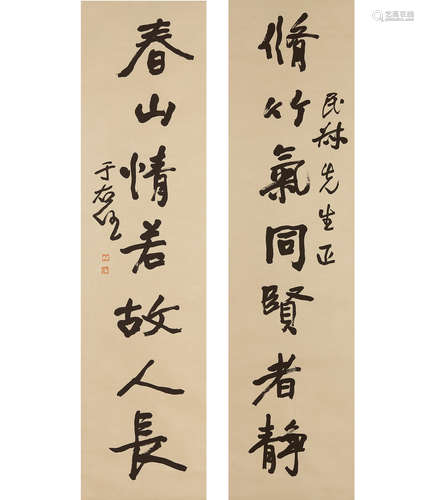 脩竹氣同賢者静
民
先生正
春山情若故人長
于右任